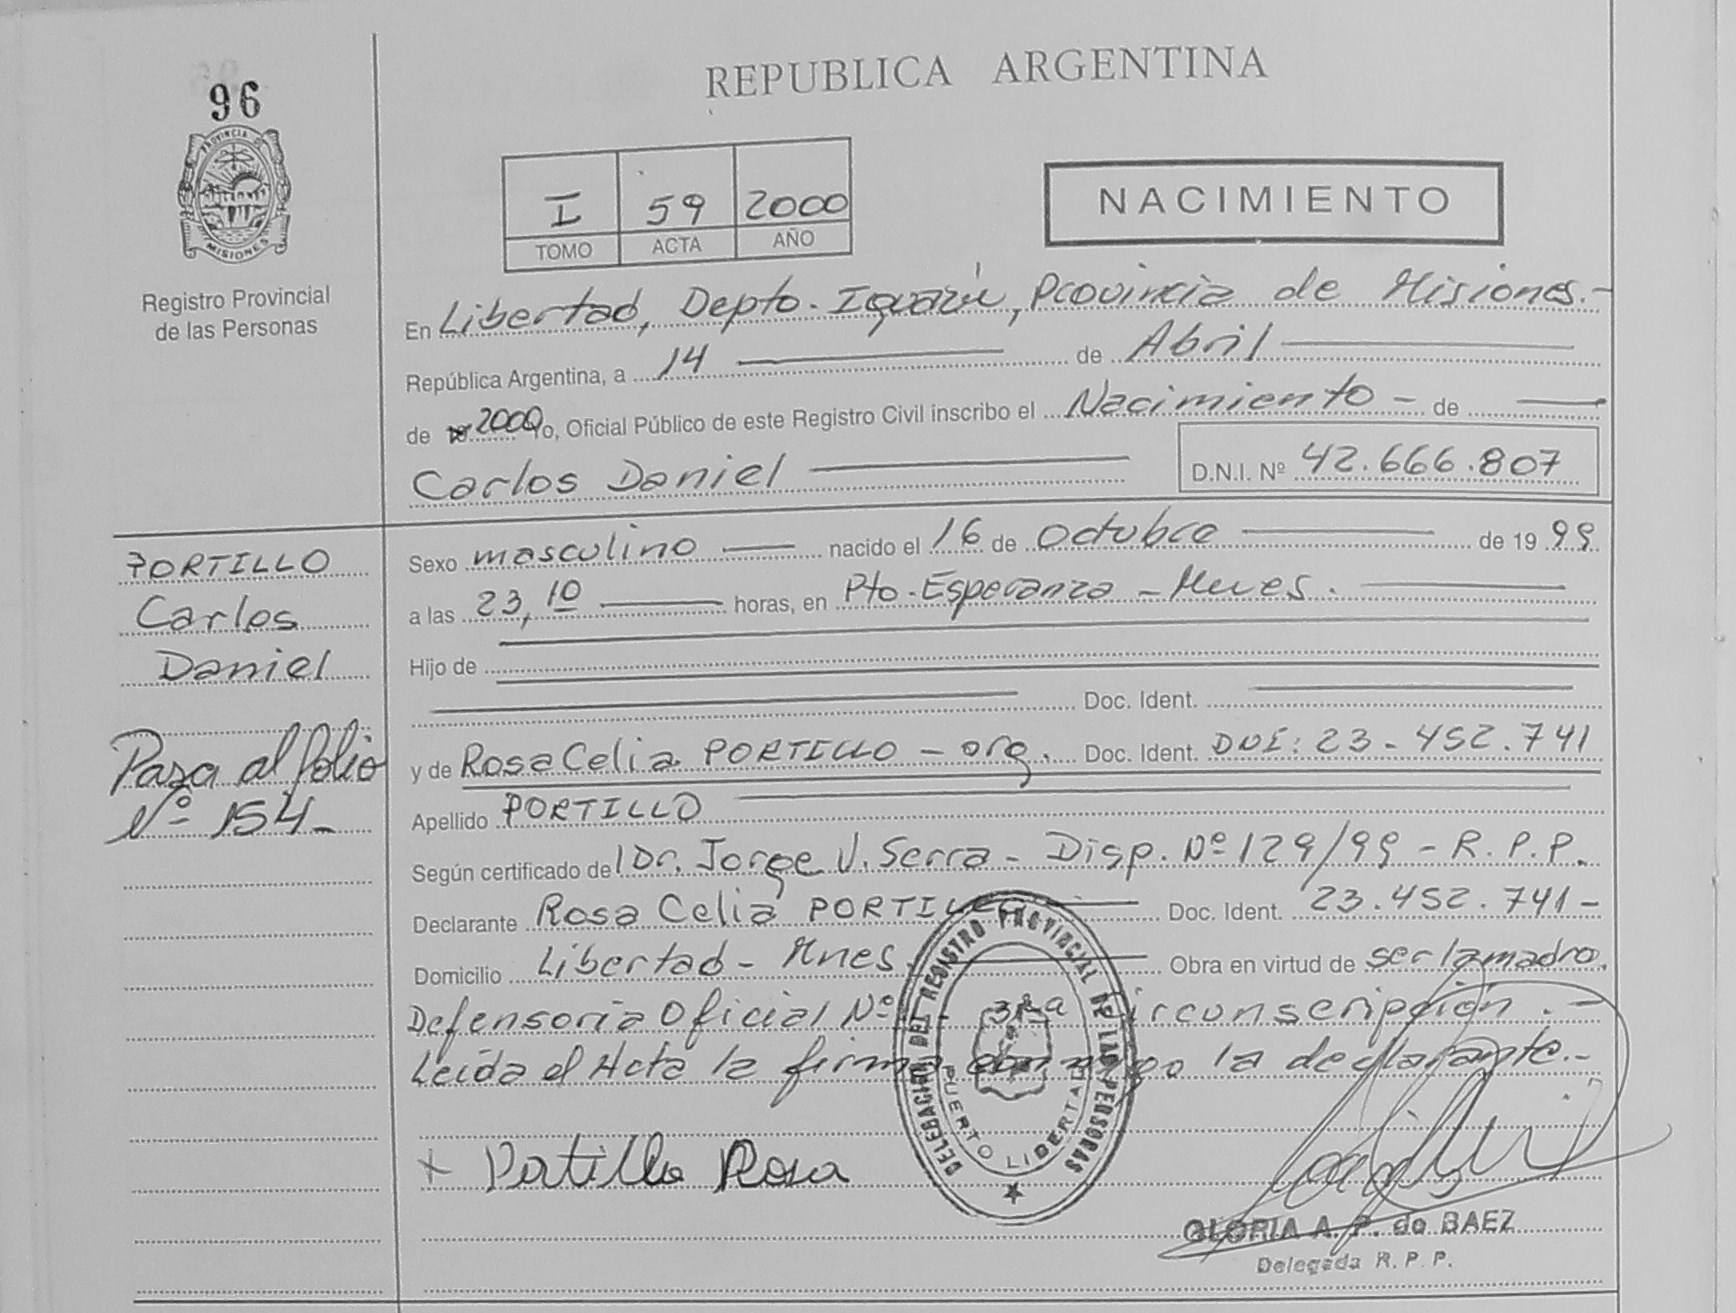 96
REPUBLICA ARGENTINA
PROVINCIA DE
MISIONES
Registro Provincial
de las Personas
I 59 2000
TOMO ACTA AÑO
NACIMIENTO
En Libertad, Depto. Iguazú, Provincia de Misiones.-
República Argentina, a 14 de Abril
de 2000 Yo, Oficial Público de este Registro Civil inscribo el Nacimiento - de
Carlos Daniel D.N.I. Nº 42.666.807
PORTILLO
Carlos
Daniel
Pasa al folio
Nº 154-
Sexo masculino nacido el 16 de Octubre de 19 99
a las 23,10 horas, en Pto. Esperanza - Mnes.
Hijo de
Doc. Ident.
y de Rosa Celia PORTILLO - arg. Doc. Ident. DNI: 23-452.741
Apellido PORTILLO
Según certificado de Dr. Jorge V. Serra - Disp. Nº 129/99 - R.P.P.
Declarante Rosa Celia PORTILLO Doc. Ident. 23.452.741-
Domicilio Libertad - Mnes. Obra en virtud de ser la madre.
Defensoria Oficial Nº - 3ra Circunscripción.-
Leída el Acta la firma conmigo la declarante.-
+ Portillo Rosa
DELEGACION DEL REGISTRO PROVINCIAL DE LAS PERSONAS
PUERTO LIBERTAD
GLORIA A. P. de BAEZ
Delegada R. P. P.